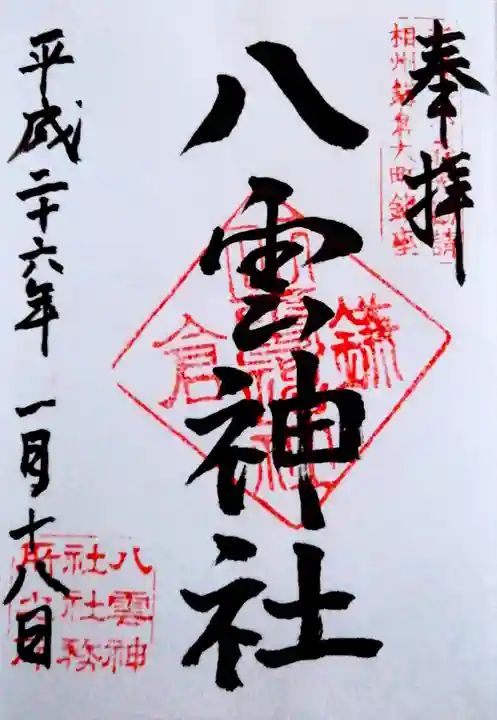 奉拝
八雲神社
平成二十六年 一月十八日
相州鎌倉大町鎮座
鎌倉
八雲神
社社務
所